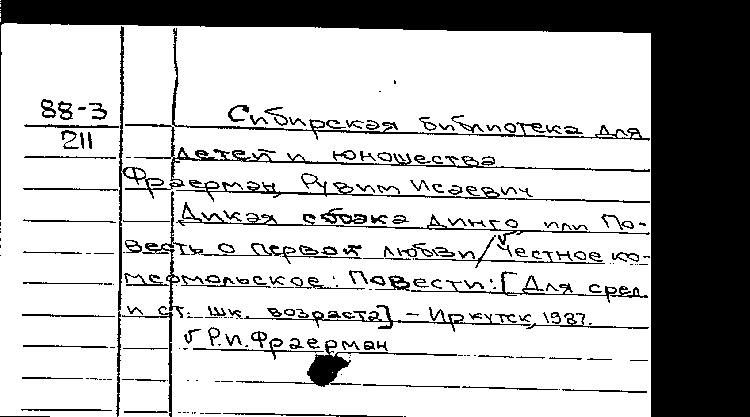 88-3
211
Сибирская библиотека для
детей и юношества
Фраерман, Рувим Исаевич
Дикая собака динго или По-
весть о первой любви/Честное ко-
мсомольское: Повести: [Для сред.
и ст. шк. возраста] - Иркутск, 1987.
Р.И.Фраерман